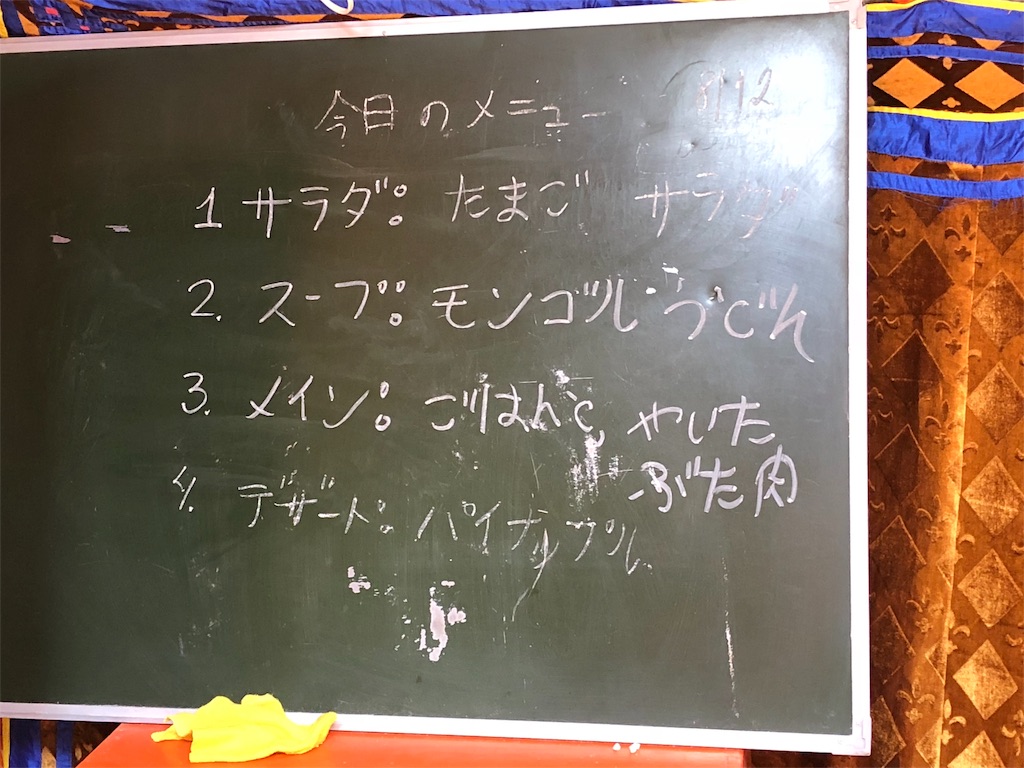 今日のメニュー 8/12
1 サラダ: たまご サラダ
2. スープ: モンゴルうどん
3. メイン: ごはんと, やいた
ぶた肉
4. デザート: パイナップル